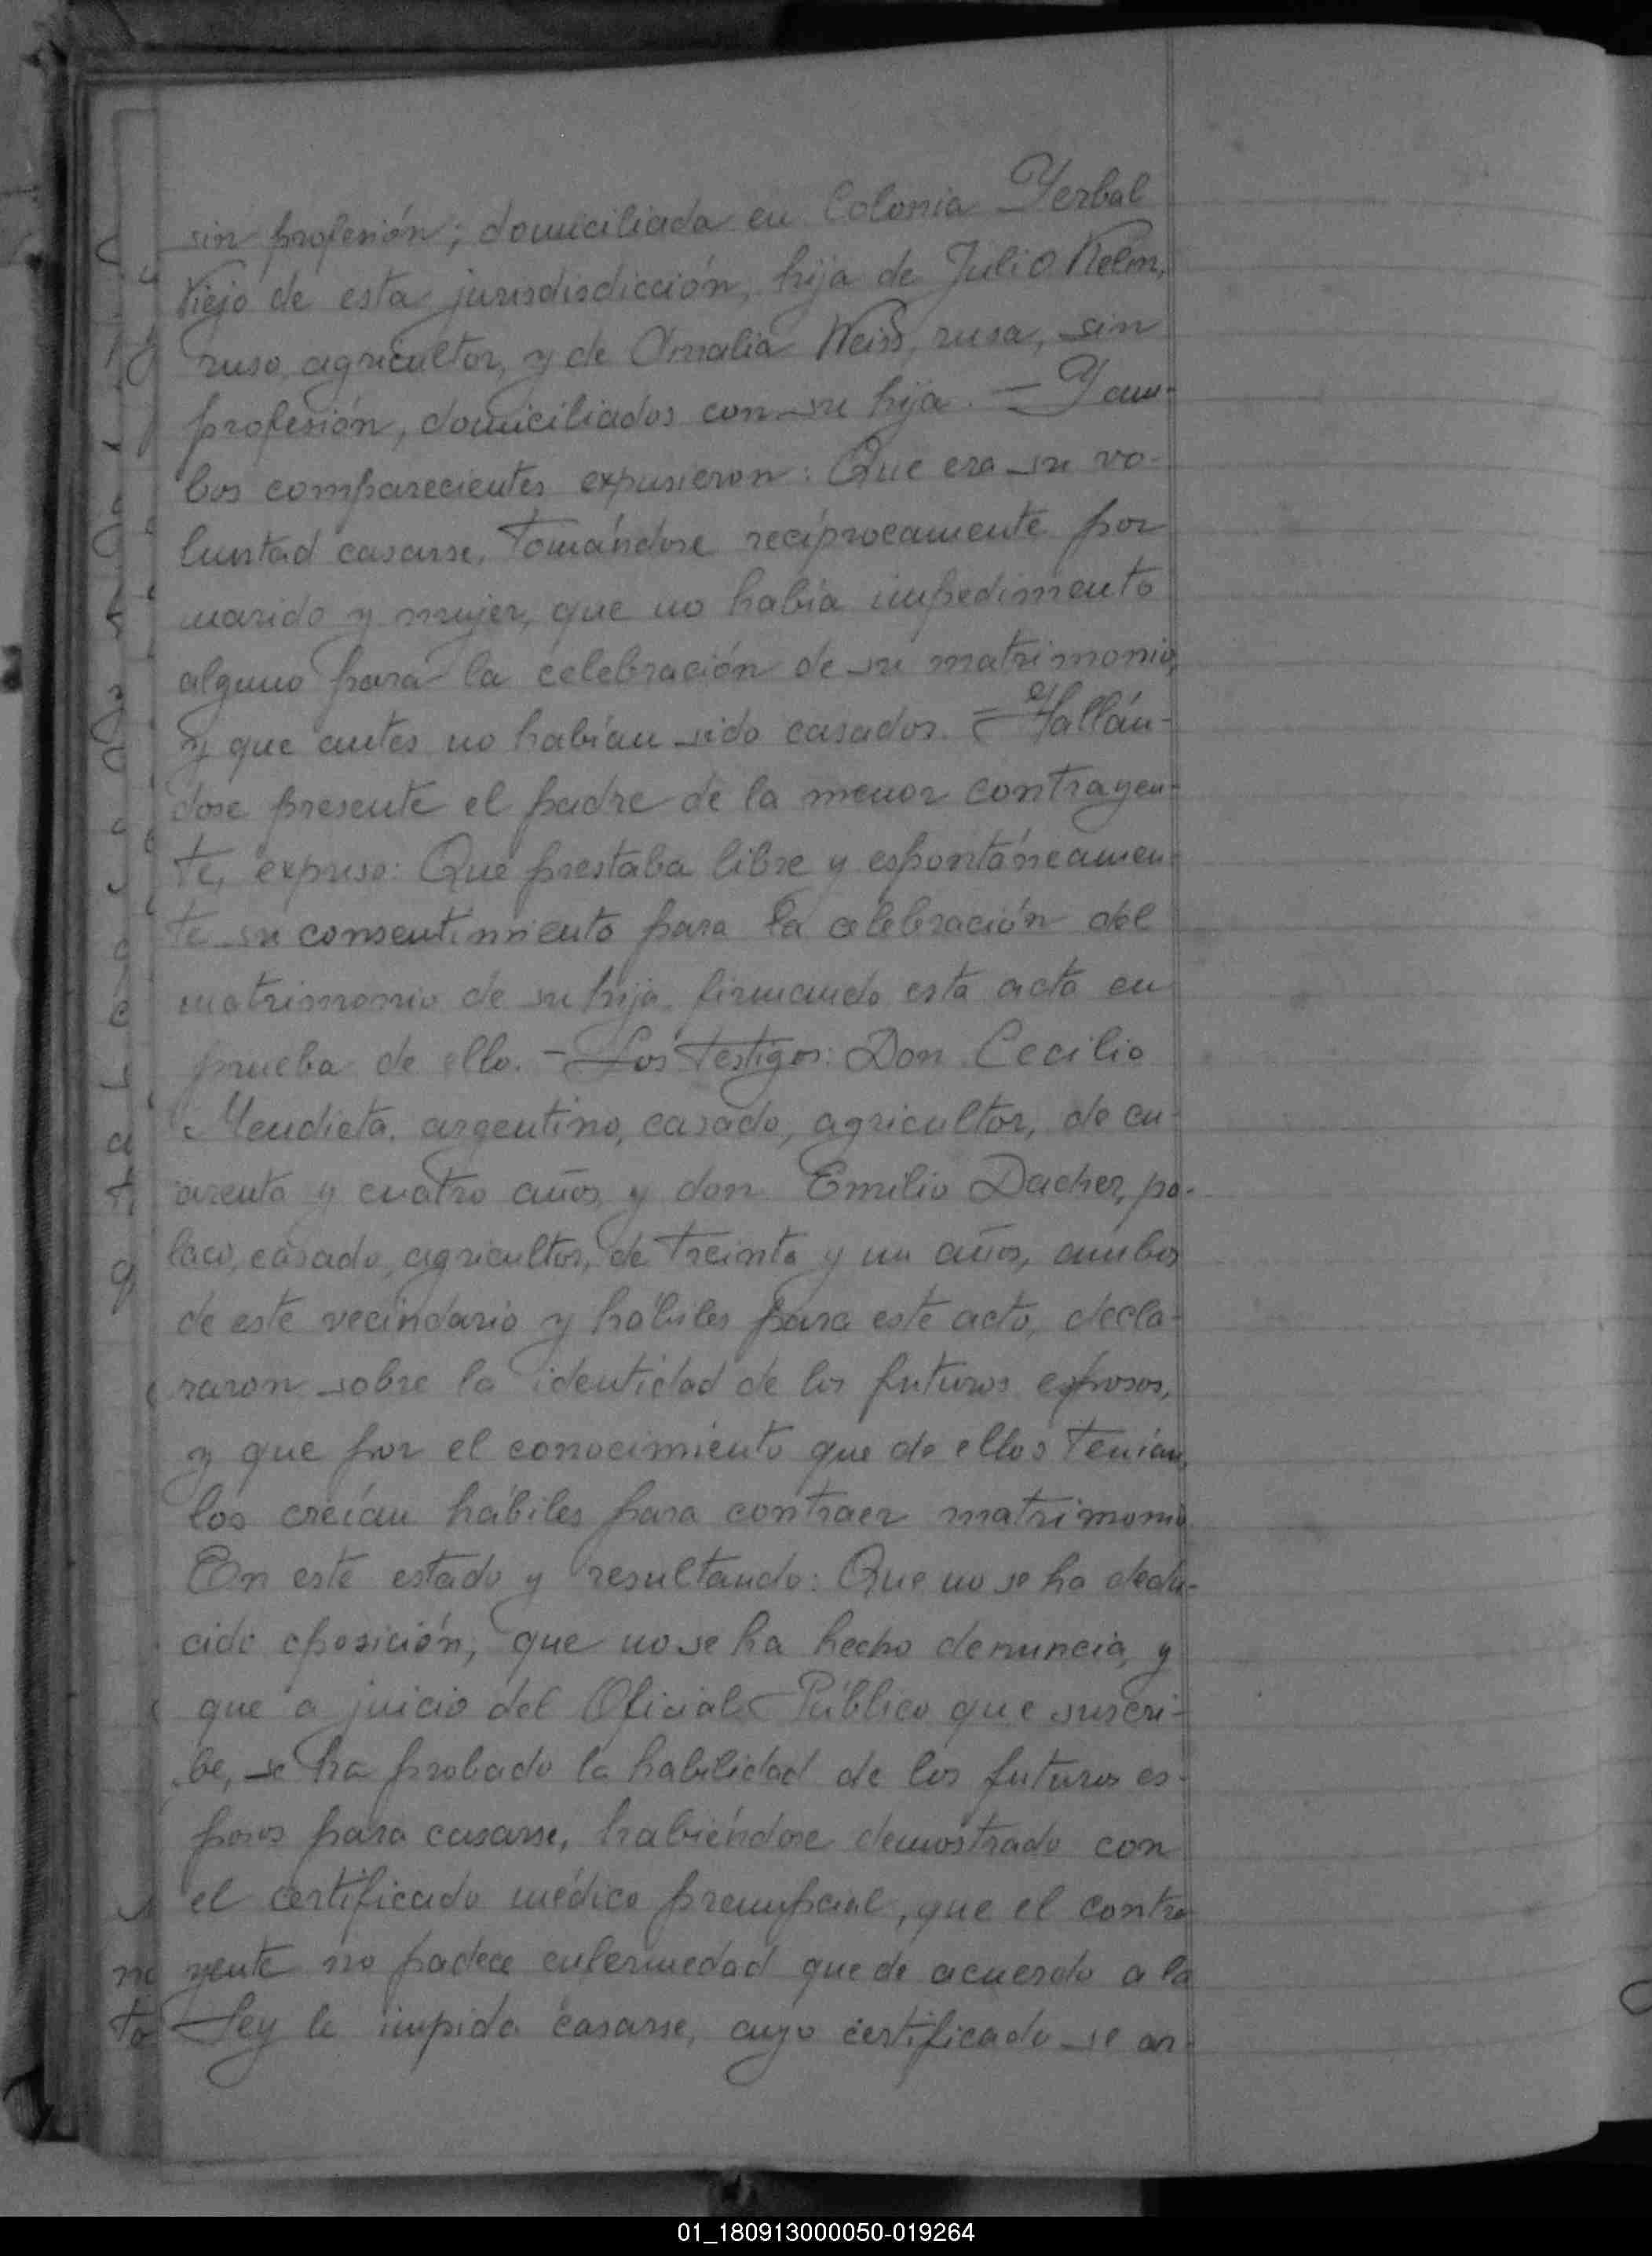 sin profesión; domiciliada en Colonia Yerbal
Viejo de esta jurisdisdicción, hija de Julio Kelm,
ruso, agricultor, y de Amalia Weiss, rusa, sin
profesión, domiciliados con su hija. — Y am-
bos comparecientes expusieron: Que era su vo-
luntad casarse, tomándose recíprocamente por
marido y mujer, que no había impedimento
alguno para la celebración de su matrimonio,
y que antes no habían sido casados. = Hallán-
dose presente el padre de la menor contrayen-
te, expuso: Que prestaba libre y espontáneamen-
te su consentimiento para la celebración del
matrimonio de su hija, firmando esta acta en
prueba de ello. — Los testigos: Don Cecilio
Mendieta, argentino, casado, agricultor, de cu-
arenta y cuatro años, y don Emilio Dacher, po-
laco, casado, agricultor, de treinta y un años, ambos
de este vecindario y hábiles para este acto, decla-
raron sobre la identidad de los futuros esposos,
y que por el conocimiento que de ellos tenían,
los creían hábiles para contraer matrimonio.
En este estado y resultando: Que no se ha dedu-
cido oposición, que no se ha hecho denuncia, y
que a juicio del Oficial Público que suscri-
be, se ha probado la habilidad de los futuros es-
posos para casarse, habiéndose demostrado con
el certificado médico prenupcial, que el contra
yente no padece enfermedad que de acuerdo a la
Ley le impida casarse, cuyo certificado se ar-
01_180913000050-019264